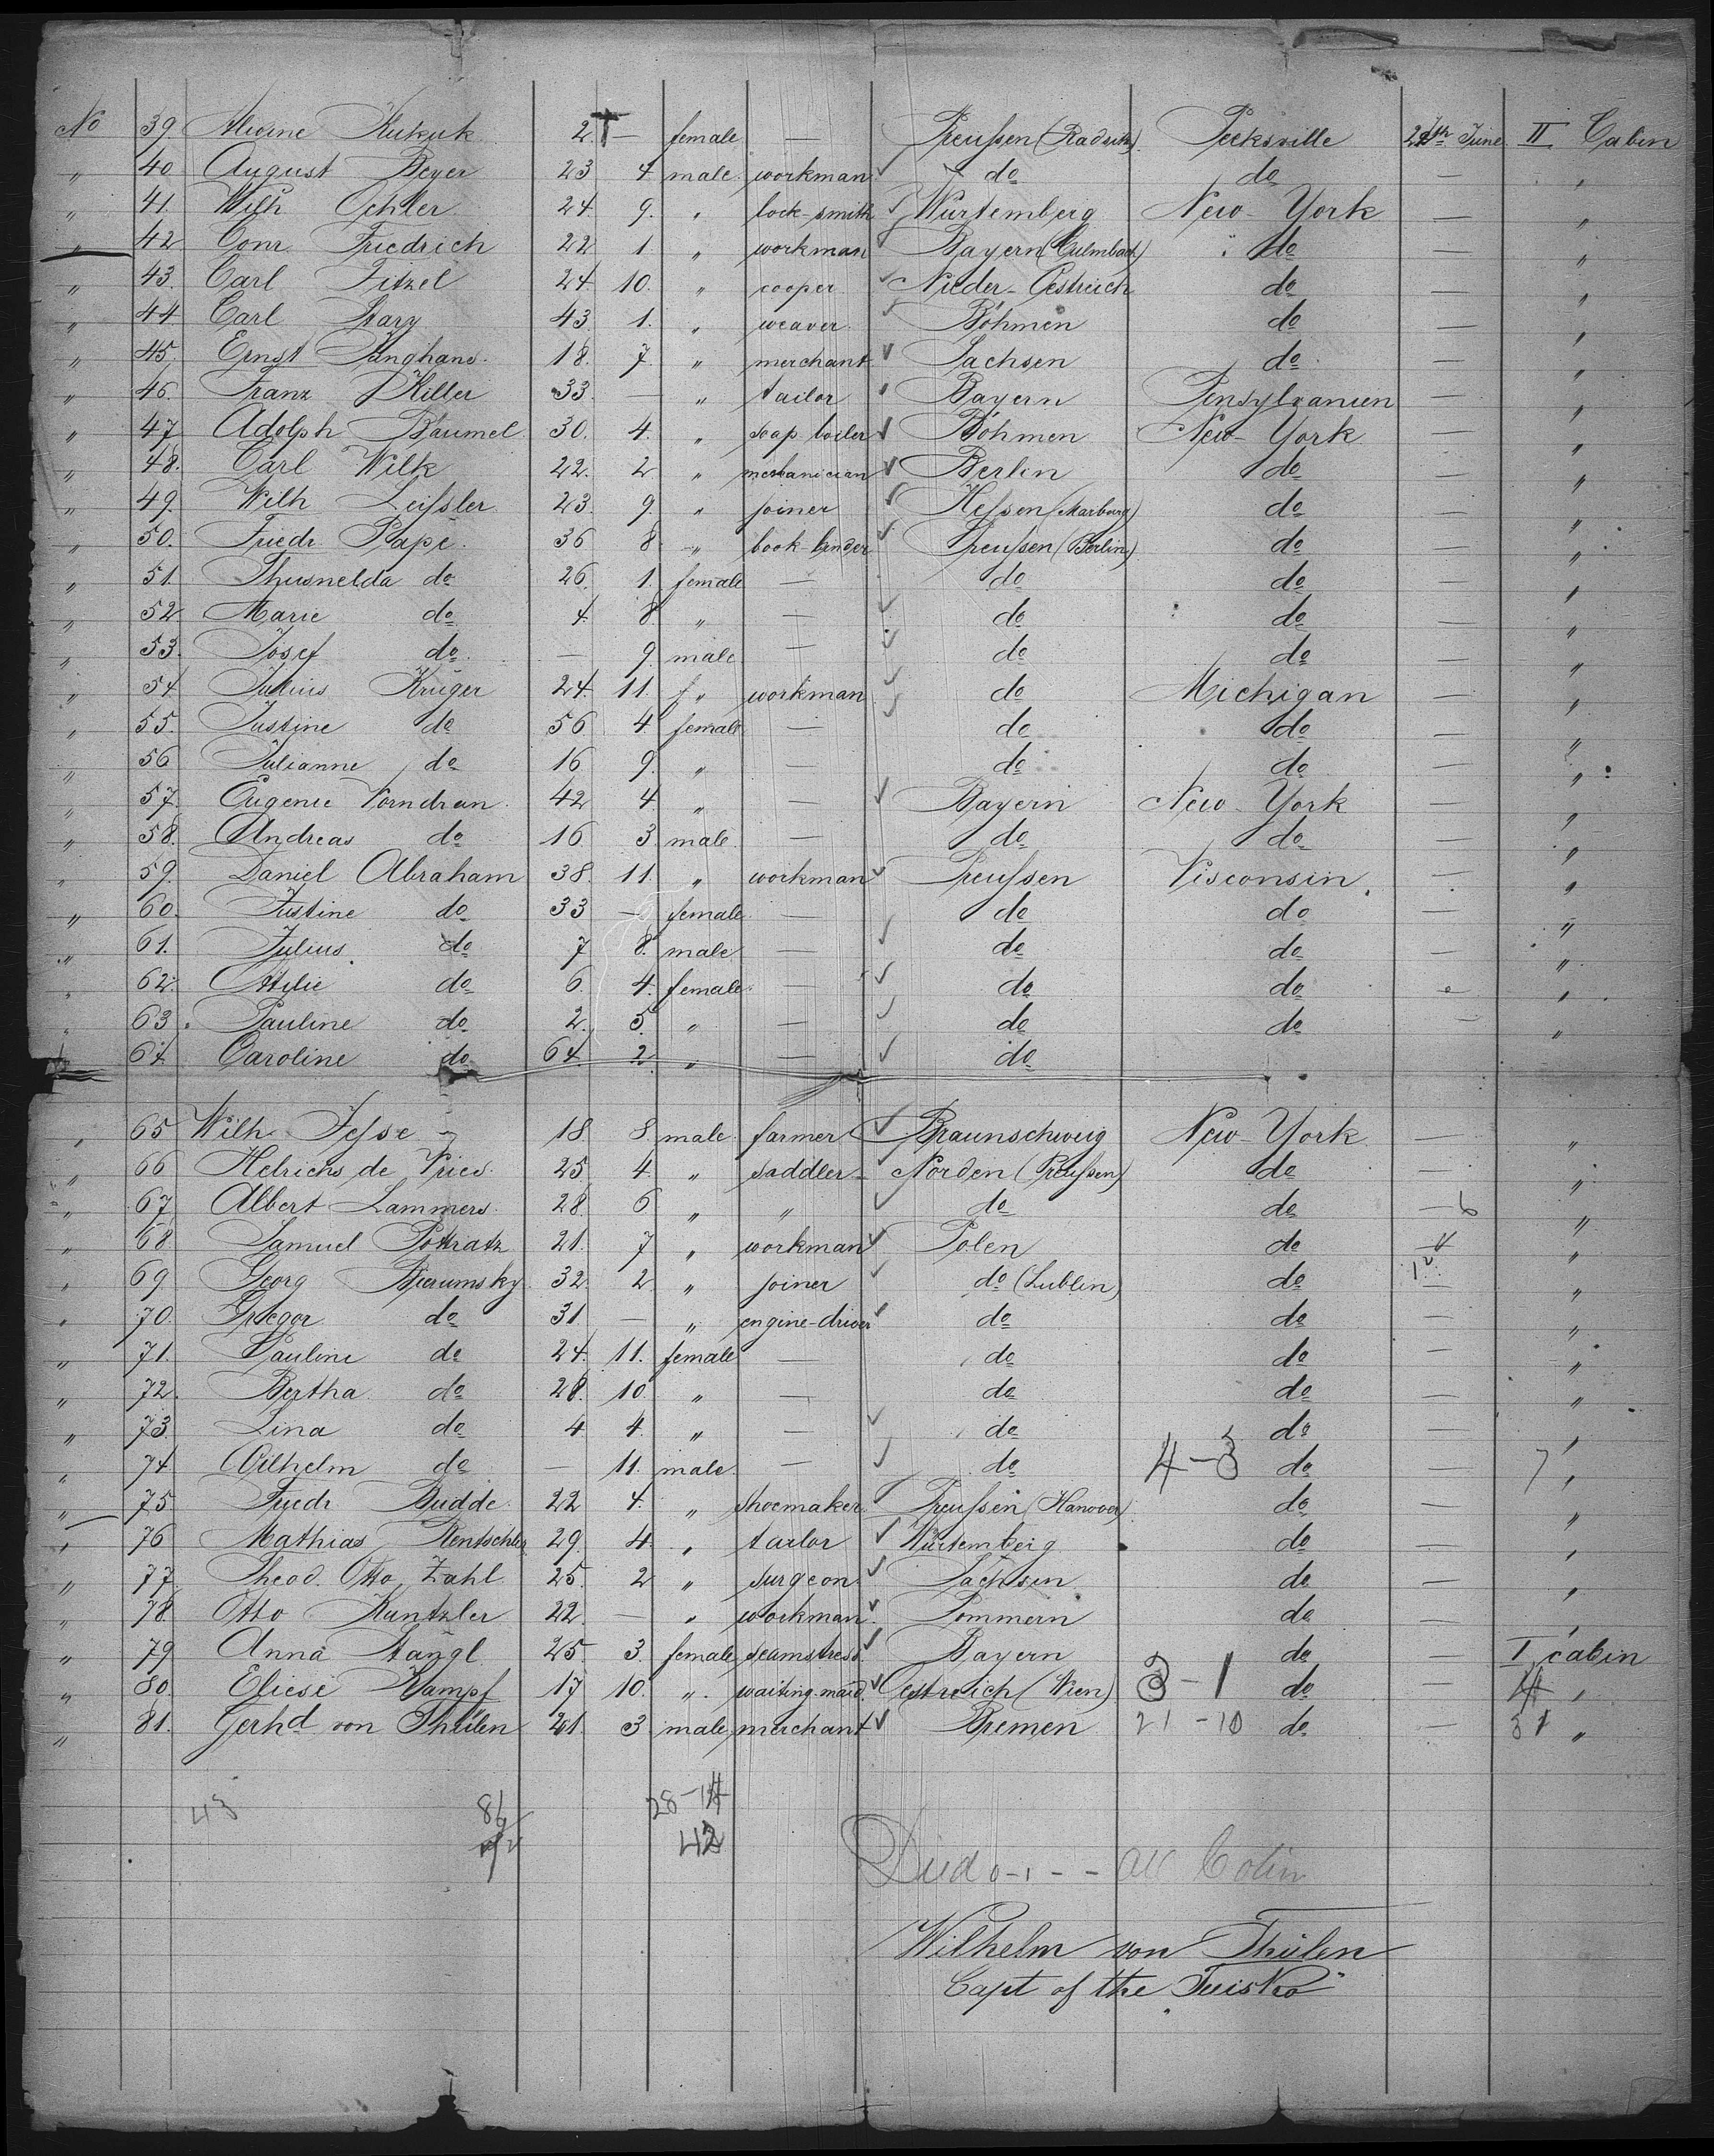 No 39. Alwine Kukuk 2 — female — Preußen (Radwitz) Pecksville 27th June II Cabin
" 40 August Beyer 23 4 male workman do do — "
" 41. Wilh Oehler 24. 9. " lock-smith Würtemberg New-York — "
" 42 Conr. Friedrich 22 1. " workman Bayern (Culmbach) do — "
" 43. Carl Fitzel 24. 10. " cooper Nieder-Oestreich do — "
" 44. Carl Stary 43. 1. " weaver Böhmen do — "
" 45. Ernst Junghans 18. 7. " merchant Sachsen do — "
" 46. Franz Killer 33. — " tailor Bayern Pensylvanien — "
" 47 Adolph Baumel 30. 4. " soap boiler Böhmen New-York — "
" 48. Carl Wilk 22. 2 " mechanician Berlin do — "
" 49. Wilh Leißler 23. 9. " joiner Hessen (Marburg) do — "
" 50. Friedr. Pape 36 8 " book-binder Preußen (Berlin) do — "
" 51. Thusnelda do 26. 1. female — do do — "
" 52 Marie do 4. 8 " — do do — "
" 53. Josef do — 9. male — do do — "
" 54 Julius Krüger 24. 11. " workman do Michigan — "
" 55. Justine do 56 4. female — do do — "
" 56 Julianne do 16 9. " — do do — "
" 57. Eugenie Vorndran 42 4 " — Bayern New-York — "
" 58. Andreas do 16 3. male — do do — "
" 59. Daniel Abraham 38. 11. " workman Preußen Visconsin — "
" 60. Justine do 33 — female — do do — "
" 61. Julius do 7 8. male — do do — "
" 62. Ottilie do 6. 4. female — do do — "
" 63. Pauline do 2. 5. " — do do — "
64. Caroline do 64. 2 " — do
" 65 Wilh Jeße 18 8 male farmer Braunschweig New-York — "
" 66 Helrichs de Vries 25 4. " saddler Norden (Preußen) do — "
" 67. Albert Lammers 28 6 " " do do — 6 "
" 68. Samuel Pottratz 21. 7 " workman Polen do — "
" 69 Georg 32. 2 " joiner do (Lublin) do — "
" 70. Gregor do 31 — " engine-driver do do — "
" 71. Pauline do 24. 11. female — do do — "
" 72. Bertha do 28. 10 " — do do — "
" 73. Lina do 4 4. " — do do — "
" 74. Wilhelm do — 11. male — do 4-3 do — 7 "
" 75. Friedr Budde 22 4. " shoemaker Preußen (Hanover) do — "
" 76 Mathias Rentschler 29. 4. " tailor Würtemberg do — "
" 77 Theod. Otto Zahl 25. 2 " surgeon Sachsen do — "
" 78. Otto Kantzler 22. — " workman Pommern do — "
" 79 Anna Stangl 25. 3. female seamstress Bayern do — I cabin
" 80. Eliese Kampf 17 10. " waiting-maid Oestreich (Wien) 3-1 do — 4 "
" 81. Gerhd von Thülen 21. 3 male merchant Bremen 21-10 do — 31 "
43 86 28-14
42
Died 0-1 -- All Cabin
Wilhelm von Thülen
Capt of the "Tuisko"